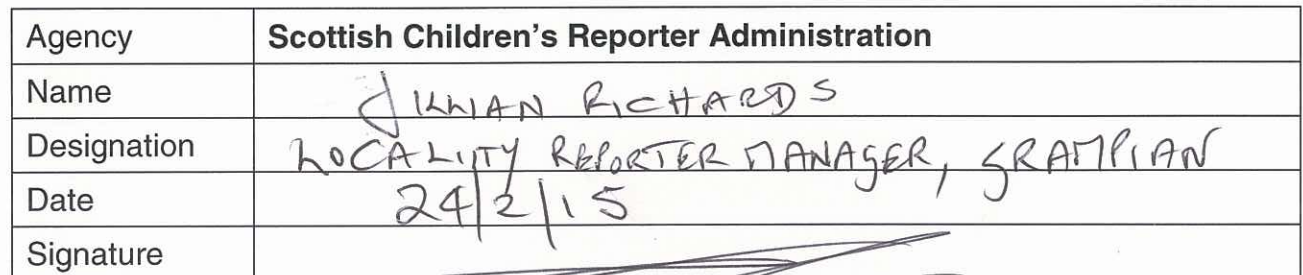 Agency Scottish Children's Reporter Administration
Name JILLIAN RICHARDS
Designation LOCALITY REPORTER MANAGER, GRAMPIAN
Date 24/2/15
Signature